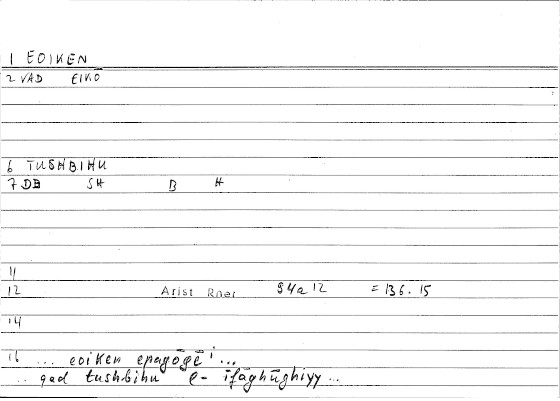 1 EOIKEN
2 VAD EIKO
6 TUSHBIHU
7 DB SH B H
11
12 Arist Rhet 94a12 = 136.15
14
16 ... eoiken epagōgē i ...
.. qad tushbihu e- īfāghūghiyy ...